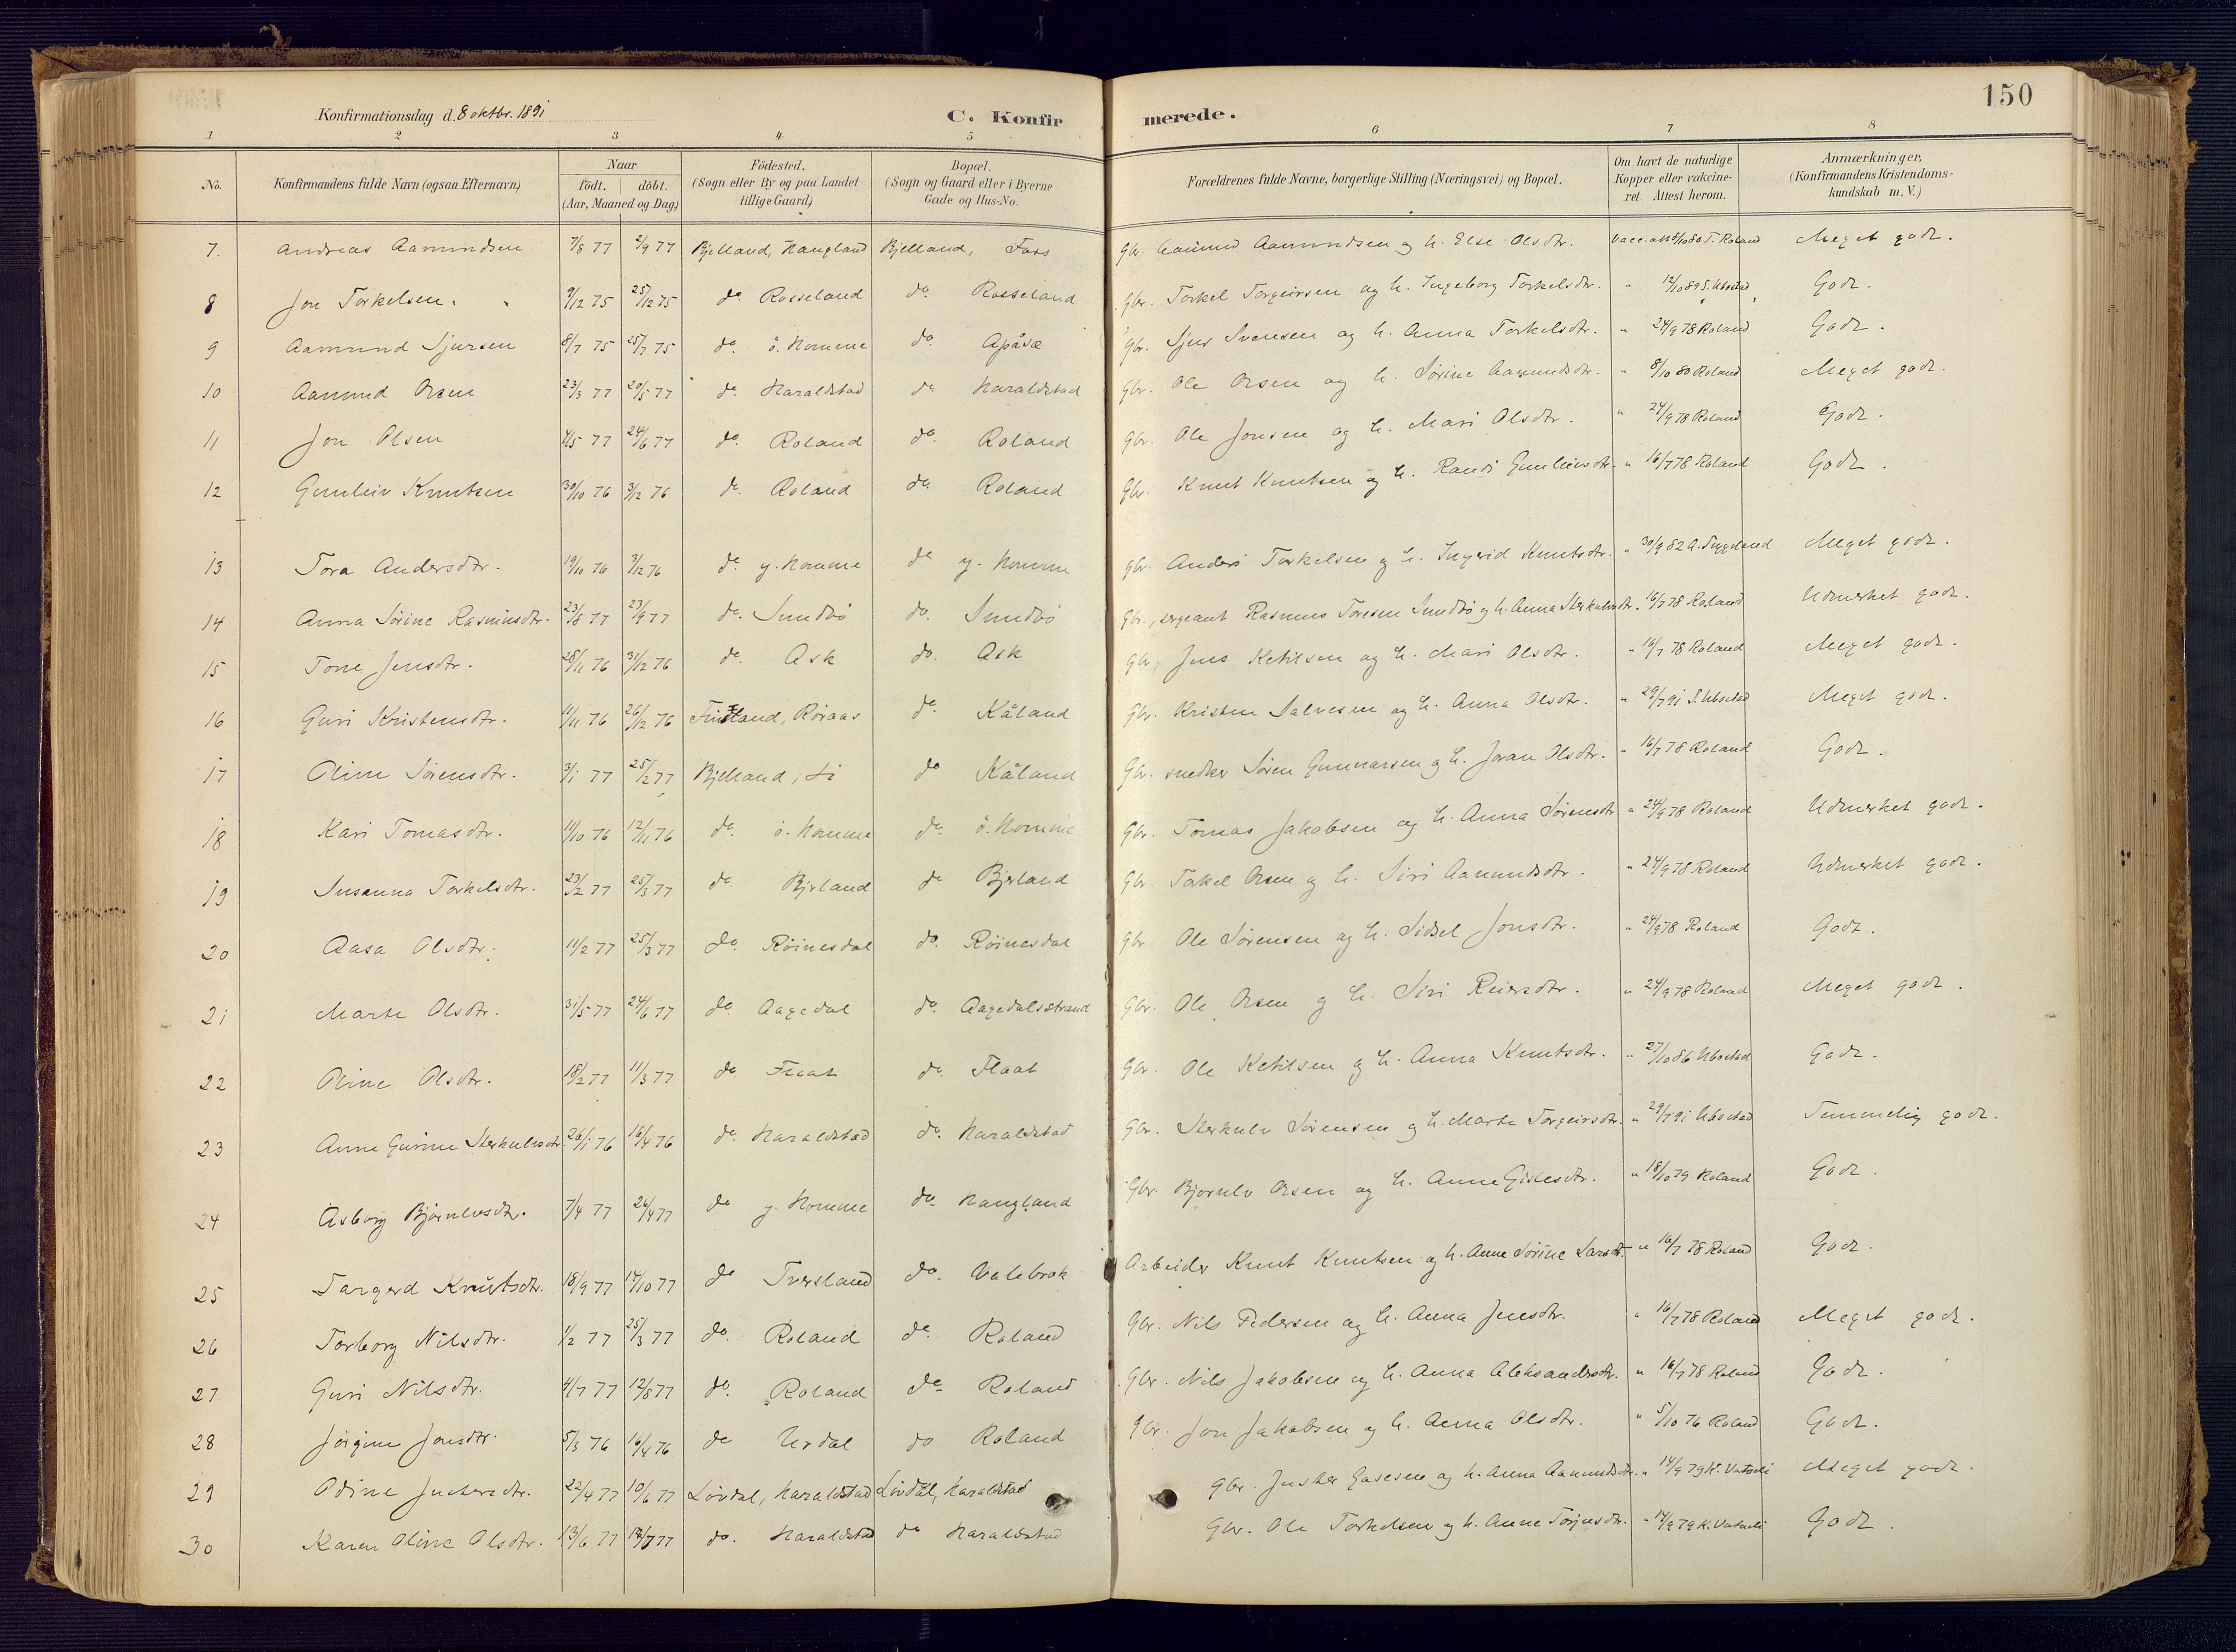 150
Konfirmationsdag d. 8 oktbr. 1891
C. Konfirmerede.
1 2 3 4 5 6 7 8
No. Konfirmandens fulde Navn (ogsaa Efternavn) Naar født. døbt. (Aar, Maaned og Dag) Födested. (Sogn eller By og paa Landet tillige Gaard) Bopæl. (Sogn og Gaard eller i Byerne Gade og Hus-No. Forældrenes fulde Navne, borgerlige Stilling (Næringsvei) og Bopæl. Om havt de naturlige Kopper eller vakcineret. Attest herom. Anmærkninger, (Konfirmandens Kristendomskundskab m. V.)
7. Andreas Aamundsen 7/8 77 2/9 77 Bjelland, Haugland Bjelland, Foss Gbr. Aamund Aamundsen og h. Else Olsdtr. Vacc. att 8/10 80 T. Roland Meget godt.
8 Jon Torkelsen. 9/12 75 25/12 75 do. Rosseland do. Rosseland Gbr. Torkel Torgeirsen og h. Ingeborg Torkelsdtr. " 12/10 89 S. Ubostad Godt.
9 Aamund Sjursen 8/7 75 25/7 75 do. ö. Homme do. Apåsæ Gbr. Sjur Svensen og h. Anna Torkelsdtr. " 24/9 78 Roland Godt.
10 Aamund Osen 23/3 77 20/5 77 do. Haraldstad do Haraldstad Gbr. Ole Osen og h. Sörine Aamundsdtr. " 8/10 80 Roland Meget godt.
11 Jon Olsen 4/5 77 24/6 77 do. Roland do. Roland Gbr. Ole Jonsen og h. Mari Olsdtr. " 24/9 78 Roland Godt.
12 Gunleiv Knutsen 30/10 76 3/12 76 do. Roland do. Roland Gbr. Knut Knutsen og h. Randi Gunleivsdtr. " 16/7 78 Roland Godt.
13 Tora Andersdtr. 19/10 76 3/12 76 do. y. Homme do y. Homme Gbr. Anders Torkelsen og h. Ingrid Knutsdtr. " 30/9 82 A. Tryggland Meget godt.
14 Anna Sörine Rasmusdtr. 23/8 77 23/9 77 do. Sundbö do. Sundbö Gbr., sergeant Rasmus Toresen Sundbö og h. Anna Sterkulvsdtr. 16/7 78 Roland Udmerket godt.
15 Tone Jensdtr. 28/11 76 31/12 76 do. Ask do. Ask Gbr, Jens Ketilsen og h. Mari Olsdtr. " 16/7 78 Roland Meget godt.
16 Guri Kristensdtr. 11/11 76 26/12 76 Finsland, Röiaas do. Kåland Gbr. Kristen Salvesen og h. Anna Olsdtr. " 29/7 91 S. Ubostad Meget godt.
17 Oline Sörensdtr. 3/1 77 25/2 77 Bjelland, Li do Kåland Gbr. snedker Sören Gunnarsen og h. Joran Olsdtr. " 16/7 78 Roland Godt.
18 Kari Tomasdtr. 11/10 76 12/11 76 do. ö. Homme do. ö. Homme Gbr. Tomas Jakobsen og h. Anna Sörensdtr " 24/9 78 Roland Udmerket godt.
19 Susanna Torkelsdtr. 23/2 77 25/3 77 do. Bjerland do Bjerland Gbr. Torkel Osen og h. Siri Aamundsdtr. " 24/9 78 Roland Udmerket godt.
20 Aasa Olsdtr. 11/2 77 25/3 77 do. Röinesdal do. Röinesdal Gbr. Ole Sörensen og h. Sidsel Jonsdtr. " 24/9 78 Roland Godt.
21 Marte Olsdtr. 31/5 77 24/6 77 do. Aagedal do. Aagedalsstrand Gbr. Ole Osen og h. Siri Reiersdtr. " 24/9 78 Roland Meget godt.
22 Oline Olsdtr. 18/2 77 11/3 77 do. Flaat do. Flaat Gbr. Ole Ketilsen og h. Anna Knutsdtr. " 27/10 86 Ubostad Godt.
23 Anne Gurine Sterkulvsdtr. 26/1 76 16/4 76 do. Haraldstad do. Haraldstad Gbr. Sterkulv Sörensen og h. Marte Torgeirsdtr. " 29/7 91 Ubostad Temmelig godt.
24 Asborg Björnulvsdtr. 7/4 77 26/4 77 do y. Homme do. Haugland Gbr. Bjornulv Osen og h. Anne Gislesdtr. " 18/10 79. Roland Godt.
25 Targerd Knutsdtr. 18/9 77 14/10 77 do Tversland do. Valebrok Arbeider Knut Knutsen og h. Anne Sörine Larsdtr. " 16/7 78 Roland Godt.
26 Torborg Nilsdtr. 1/2 77 25/3 77 do. Roland do. Roland Gbr. Nils Pedersen og h. Anna Jensdtr. " 16/7 78 Roland Meget godt.
27 Guri Nilsdtr. 4/7 77 12/8 77 do. Roland do Roland Gbr. Nils Jakobsen og h. Anna Aleksandersdtr. " 16/7 78 Roland Godt.
28 Jörgine Jonsdtr. 5/3 76 16/4 76 do Urdal do Roland Gbr. Jon Jakobsen og h. Anna Olsdtr. " 5/10 76 Roland Godt.
29 Odine Justersdtr. 22/4 77 10/6 77 Lövdal, Haraldstad Lövdal, Haraldstad Gbr. Juster Gasesen og h. Anna Aamundsdtr. " 14/9 79 K. Vatneli Meget godt.
30 Karen Oline Olsdtr. 13/6 77 12/7 77 do. Haraldstad do Haraldstad Gbr. Ole Torkelsen og h. Anne Törjusdtr. " 14/9 79 K. Vatneli Godt.